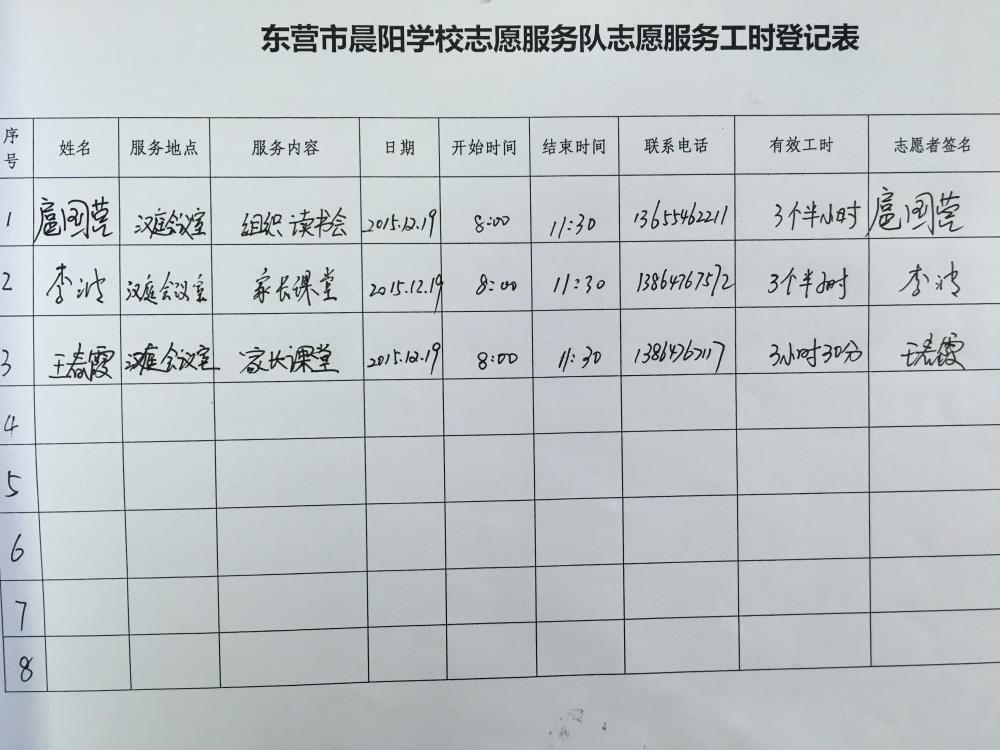 东营市晨阳学校志愿服务队志愿服务工时登记表
序号 姓名 服务地点 服务内容 日期 开始时间 结束时间 联系电话 有效工时 志愿者签名
1 扈国营 汉庭会议室 组织读书会 2015.12.19 8:00 11:30 13655462211 3个半小时 扈国营
2 李波 汉庭会议室 家长课堂 2015.12.19 8:00 11:30 13864767572 3个半小时 李波
3 王春霞 汉庭会议室 家长课堂 2015.12.19 8:00 11:30 3小时30分 王春霞
4
5
6
7
8